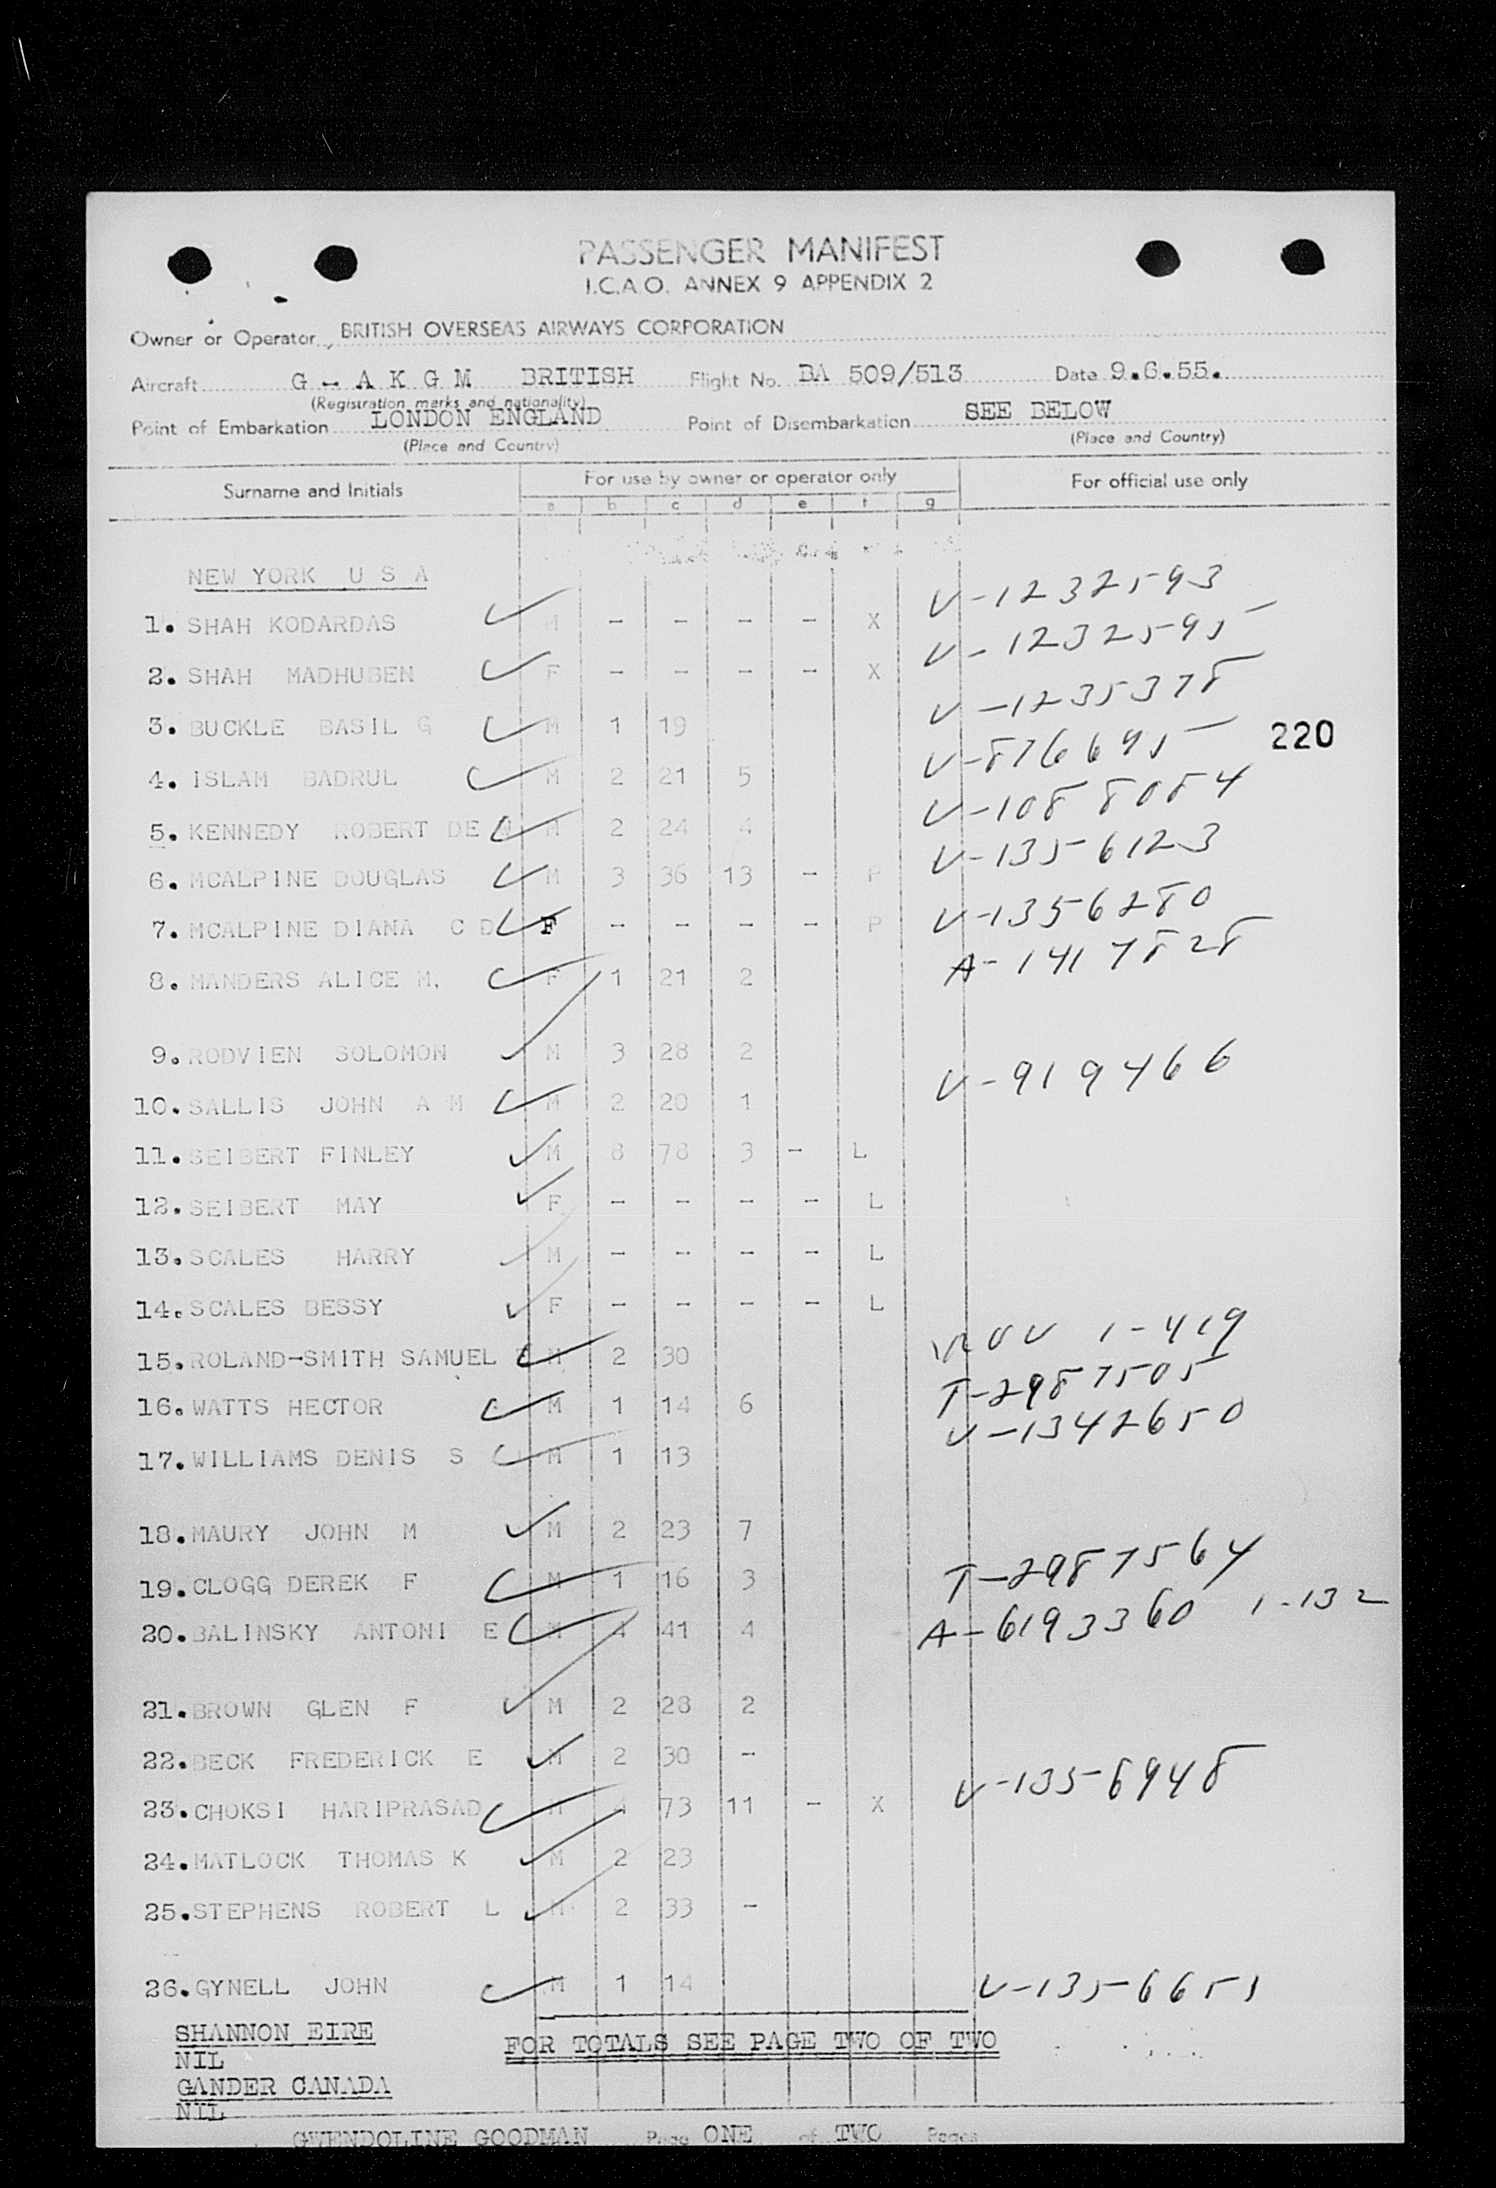 PASSENGER MANIFEST
I.C.A.O. ANNEX 9 APPENDIX 2
Owner or Operator BRITISH OVERSEAS AIRWAYS CORPORATION
Aircraft G - A K G M BRITISH Flight No. BA 509/513 Date 9.6.55.
(Registration marks and nationality)
Point of Embarkation LONDON ENGLAND Point of Disembarkation SEE BELOW
(Place and Country) (Place and Country)
Surname and Initials For use by owner or operator only For official use only
a b c d e f g
NEW YORK U S A
1. SHAH KODARDAS M - - - - X V-1232593
2. SHAH MADHUBEN F - - - - X V-1232595
3. BUCKLE BASIL G M 1 19 V-1235378
220
4. ISLAM BADRUL M 2 21 5 V-876695
5. KENNEDY ROBERT DE M 2 24 4 V-1088084
6. MCALPINE DOUGLAS M 3 36 13 - P V-1356123
7. MCALPINE DIANA C D F - - - - P V-1356280
8. MANDERS ALICE M. F 1 21 2 A-1417828
9. RODVIEN SOLOMON M 3 28 2
10. SALLIS JOHN A M M 2 20 1 V-919466
11. SEIBERT FINLEY M 8 78 3 - L
12. SEIBERT MAY F - - - - L
13. SCALES HARRY M - - - - L
14. SCALES BESSY F - - - - L
15. ROLAND-SMITH SAMUEL M 2 30 1-419
16. WATTS HECTOR M 1 14 6 T-2987505
17. WILLIAMS DENIS S M 1 13 V-1342650
18. MAURY JOHN M M 2 23 7
19. CLOGG DEREK F M 1 16 3 T-2987564
20. BALINSKY ANTONI E M 4 41 4 A-6193360 1-132
21. BROWN GLEN F M 2 28 2
22. BECK FREDERICK E M 2 30 -
23. CHOKSI HARIPRASAD M 4 73 11 - X V-1356948
24. MATLOCK THOMAS K M 2 23
25. STEPHENS ROBERT L M 2 33 -
26. GYNELL JOHN M 1 14 V-1356651
SHANNON EIRE
FOR TOTALS SEE PAGE TWO OF TWO
NIL
GANDER CANADA
NIL
GWENDOLINE GOODMAN Page ONE of TWO Pages